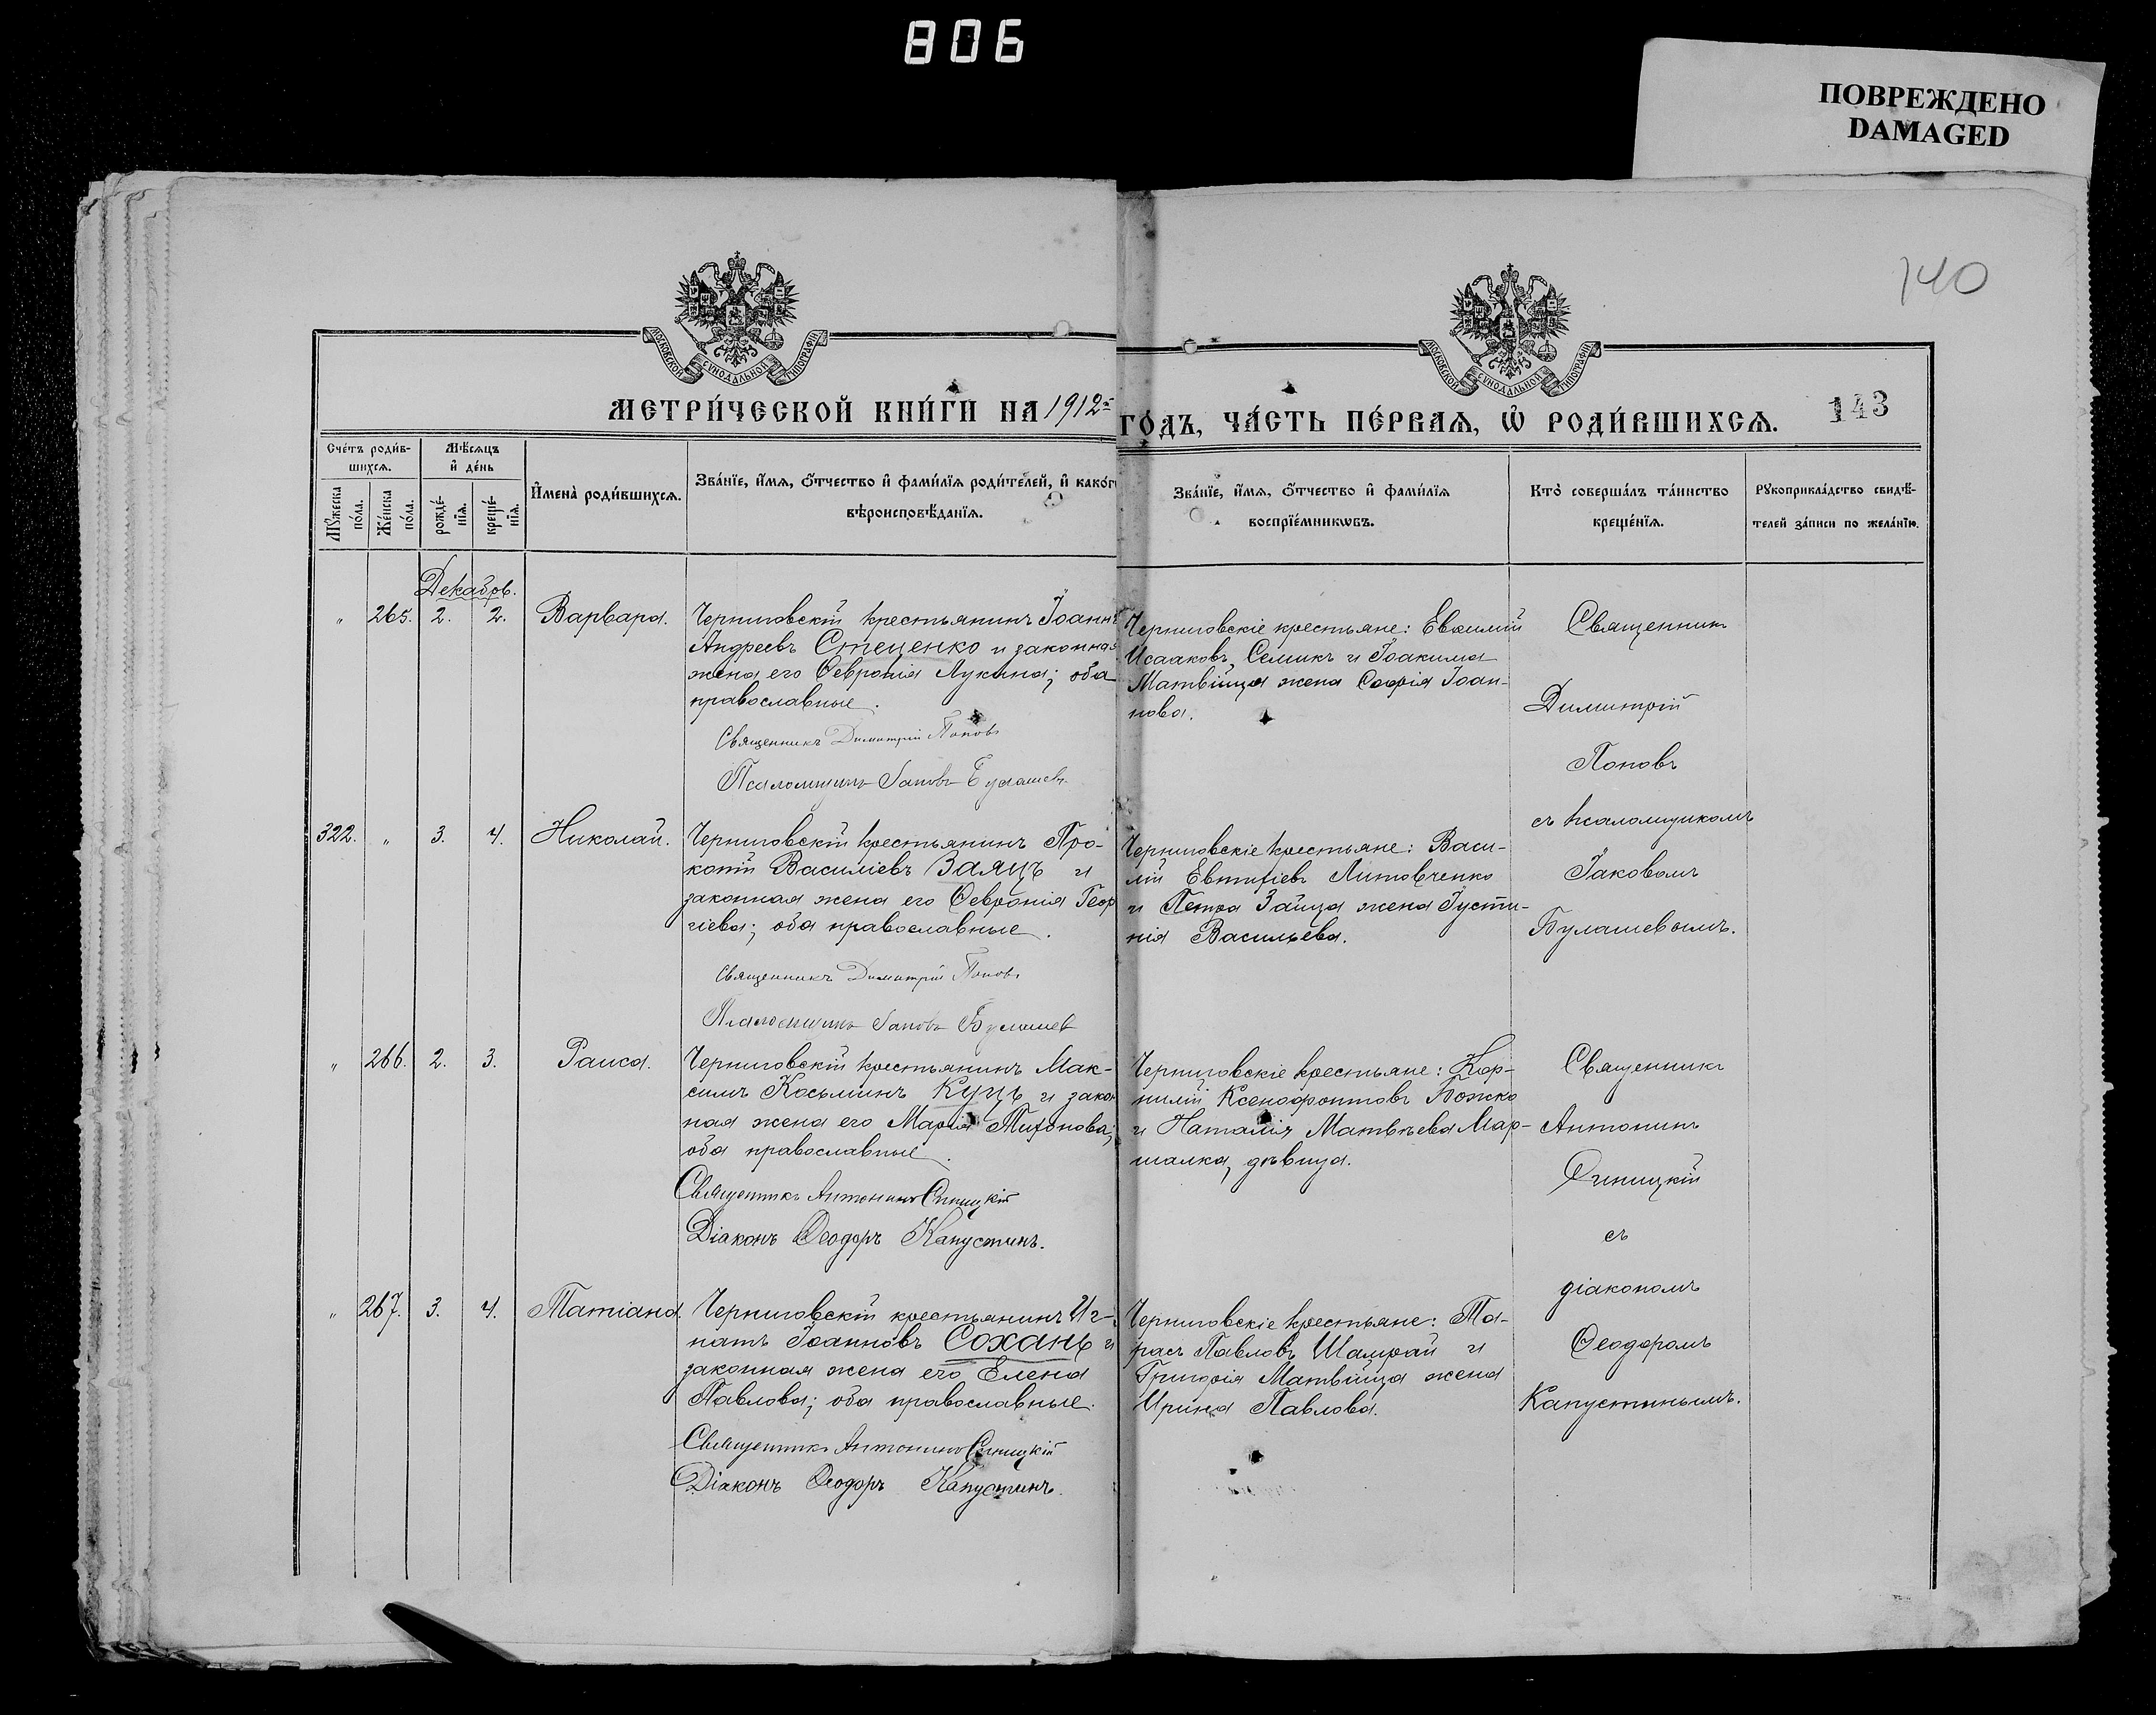 806
ПОВРЕЖДЕНО
DAMAGED
140
МОСКОВСКОЙ СѴНОДАЛЬНОЙ ТИПОГРАФІИ
МОСКОВСКОЙ СѴНОДАЛЬНОЙ ТИПОГРАФІИ
МЕТРИ́ЧЕСКОЙ КНИ́ГИ НА 1912й
ГО́ДЪ, ЧА́СТЬ ПЕ́РВАѦ, Ѡ҆ РОДИ́ВШИХСѦ.
143
Сче́тъ роди́в-
шихсѧ.
Мѣ́сѧцъ
и҆ де́нь
Мꙋ́жеска
по́ла.
Же́нска
по́ла.
рожде́-
нїѧ.
креще́-
нїѧ.
И҆мена̀ роди́вшихсѧ.
Зва́нїе, и҆́мѧ, ѻ҆́тчество и҆ фами́лїѧ роди́телей, и҆ како́г
вѣроисповѣ́данїѧ.
Зва́нїе, и҆́мѧ, ѻ҆́тчество и҆ фами́лїѧ
воспрїе́мникѡвъ.
Кто̀ соверша́лъ та́инство
креще́нїѧ.
Рꙋкоприкла́дство свидѣ́-
телей за́писи по жела́нїю.
Декабрь.
" 265. 2. 2. Варвара.
Черниговскій крестьянинъ Іоаннъ
Андреевъ Стеценко и законная
жена его Ѳевронія Лукина; оба
православные.
Священникъ Димитрій Поповъ
Псаломщикъ Іаковъ Булашевъ
Черниговскіе крестьяне: Евѳимій
Исааковъ Семикъ и Іоакима
Матвійца жена Софія Іоан-
нова.
Священникъ
Димитрій
Поповъ
съ псаломщикомъ
Іаковомъ
Булашевымъ.
322. " 3. 4. Николай.
Черниговскій крестьянинъ Про-
копій Василіевъ Заяцъ и
законная жена его Ѳевронія Геор
гіева; оба православные.
Священникъ Димитрій Поповъ
Псаломщикъ Іаковъ Булашевъ
Черниговскіе крестьяне: Васи-
лій Евтихіевъ Литовченко
и Петра Зайца жена Іусти-
нія Васильева.
" 266. 2. 3. Раиса.
Черниговскій крестьянинъ Мак-
симъ Косьминъ Куцъ и закон
ная жена его Марія Тихонова;
оба православные.
Священникъ Антонинъ Синицкій
Діаконъ Ѳеодоръ Капустинъ.
Черниговскіе крестьяне: Кор-
нилій Ксенофонтовъ Божко
и Наталія Матвѣева Мар-
шалка, дѣвица.
Священникъ
Антонинъ
Синицкій
съ
діакономъ
Ѳеодоромъ
Капустинымъ.
" 267. 3. 4. Татіана.
Черниговскій крестьянинъ Иг-
натъ Іоанновъ Сохань и
законная жена его Елена
Павлова; оба православные.
Священникъ Антонинъ Синицкій
Діаконъ Ѳеодоръ Капустинъ.
Черниговскіе крестьяне: Та-
расъ Павловъ Шамрай и
Григорія Матвійца жена
Ирина Павлова.